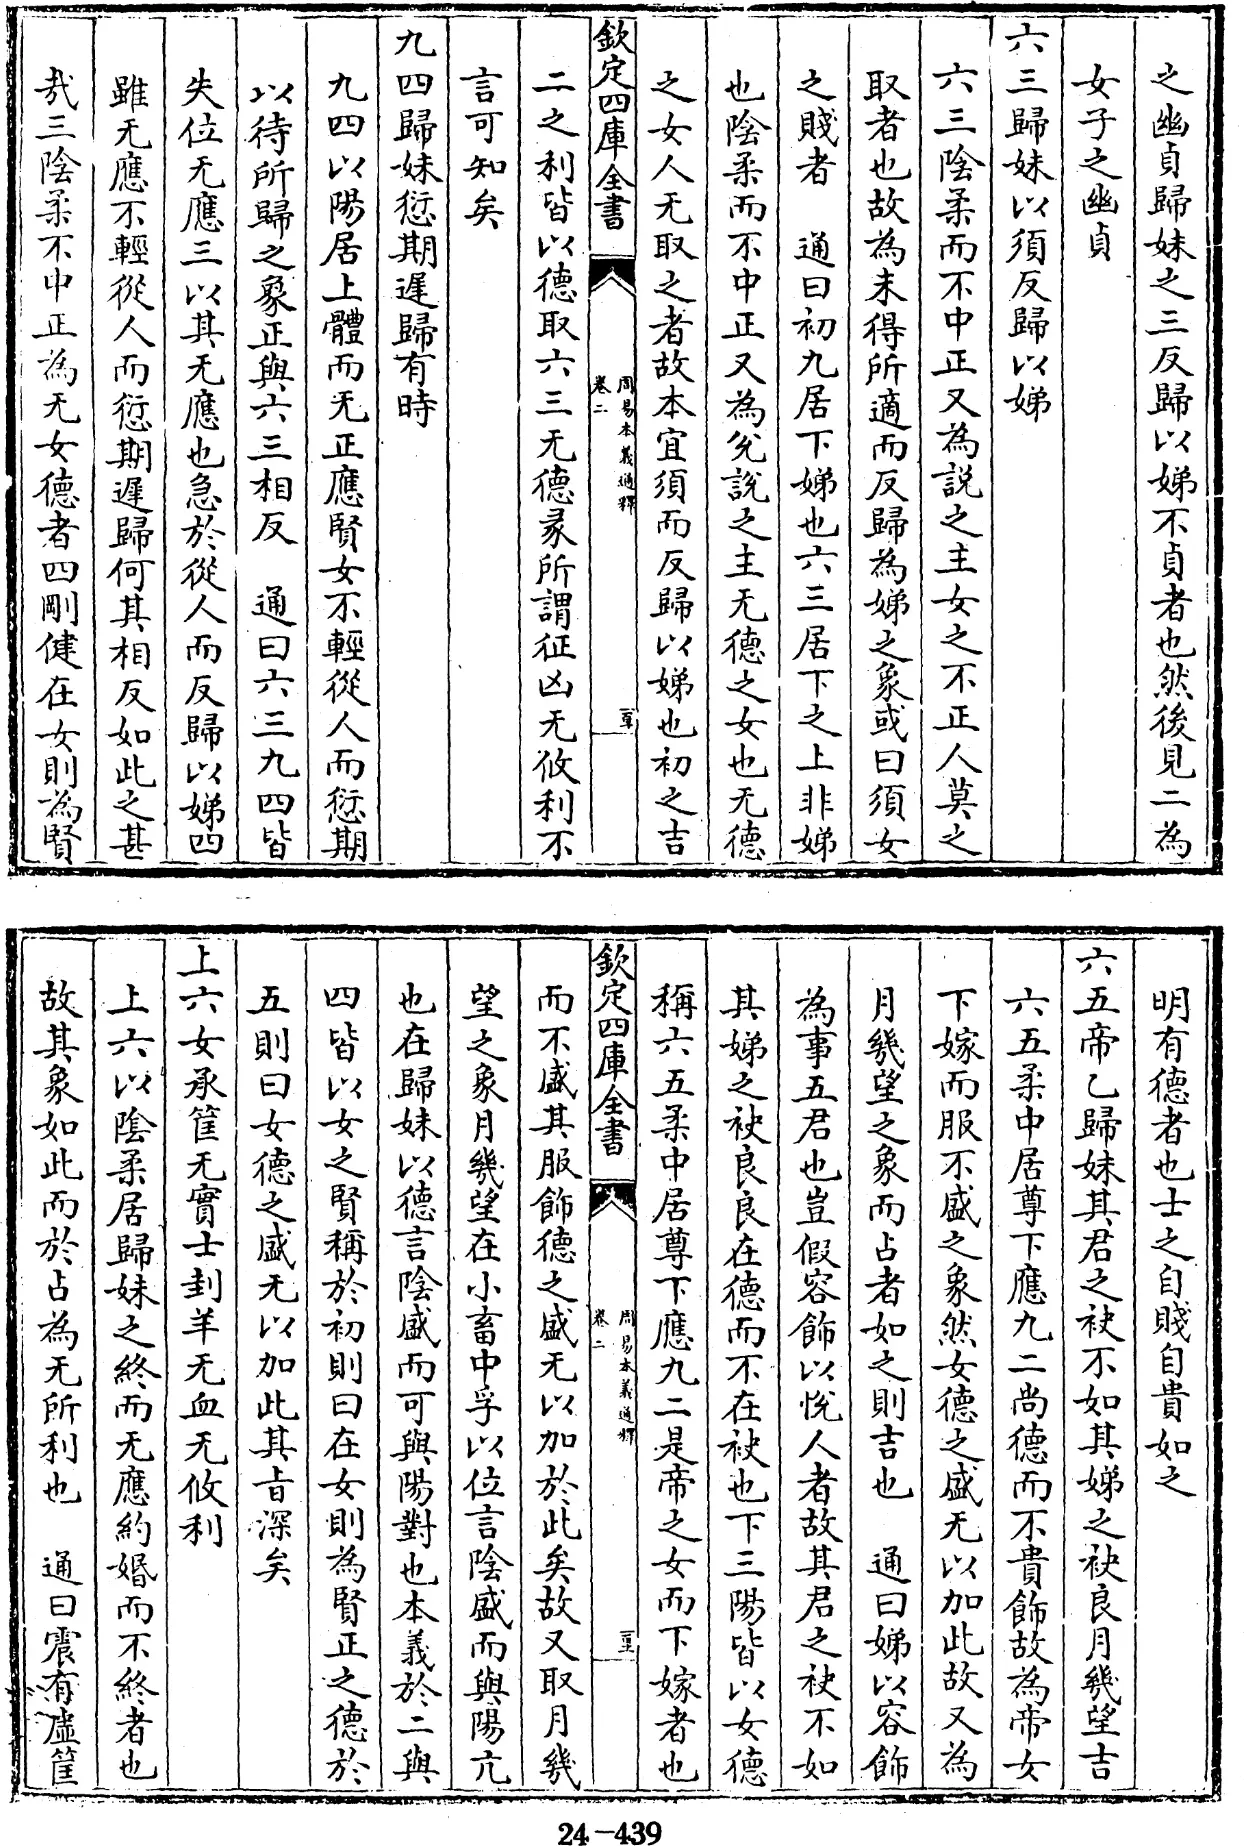 之幽貞歸妹之三反歸以娣不貞者也然後見二為
女子之幽貞
六三歸妹以須反歸以娣
六三陰柔而不中正又為説之主女之不正人莫之
取者也故為未得所適而反歸為娣之象或曰須女
之賤者　通曰初九居下娣也六三居下之上非娣
也陰柔而不中正又為兊説之主无德之女也无德
之女人无取之者故本宜須而反歸以娣也初之吉
欽定四庫全書
周易本義通釋
卷二
二之利皆以德取六三无德彖所謂征凶无攸利不
言可知矣
九四歸妹愆期遲歸有時
九四以陽居上體而无正應賢女不輕從人而愆期
以待所歸之象正與六三相反　通曰六三九四皆
失位无應三以其无應也急於從人而反歸以娣四
雖无應不輕從人而愆期遲歸何其相反如此之甚
㢤三陰柔不中正為无女德者四剛健在女則為賢
明有德者也士之自賤自貴如之
六五帝乙歸妹其君之袂不如其娣之袂良月幾望吉
六五柔中居尊下應九二尚德而不貴飾故為帝女
下嫁而服不盛之象然女德之盛无以加此故又為
月幾望之象而占者如之則吉也　通曰娣以容飾
為事五君也豈假容飾以悅人者故其君之袂不如
其娣之袂良良在德而不在袂也下三陽皆以女德
稱六五柔中居尊下應九二是帝之女而下嫁者也
欽定四庫全書
周易本義通釋
卷二
而不盛其服飾德之盛无以加於此矣故又取月幾
望之象月幾望在小畜中孚以位言陰盛而與陽亢
也在歸妹以德言陰盛而可與陽對也本義於二與
四皆以女之賢稱於初則曰在女則為賢正之德於
五則曰女德之盛无以加此其㫖深矣
上六女承筐无實士刲羊无血无攸利
上六以陰柔居歸妹之終而无應約婚而不終者也
故其象如此而於占為无所利也　通曰震有虛筐
24-439